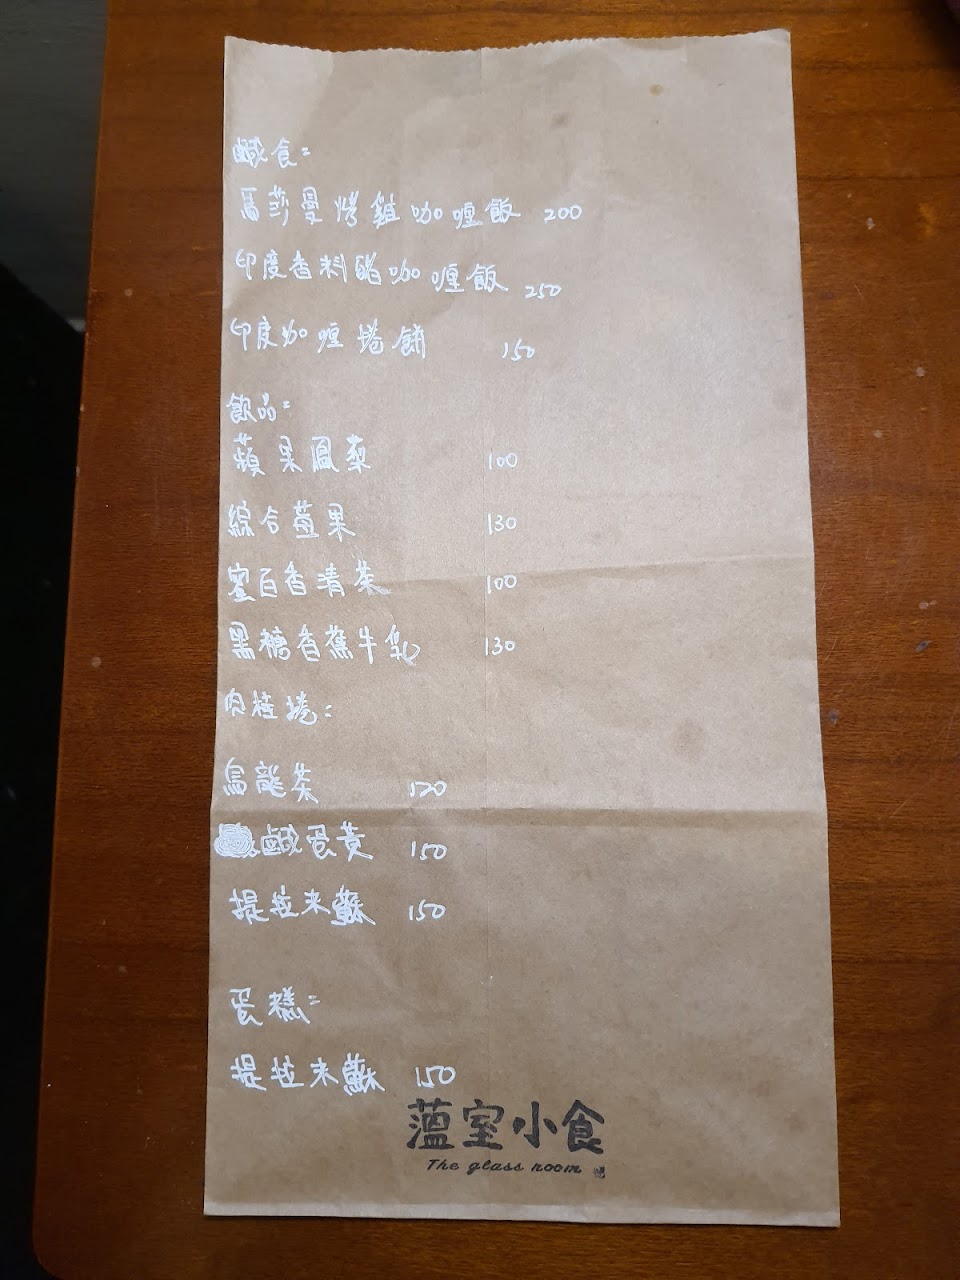 鹹食:
馬莎曼烤雞咖喱飯 200
印度香料醋咖喱飯 250
印度咖喱捲餅 150
飲品:
蘋果鳳梨 100
綜合莓果 130
蜜百香清茶 100
黑糖香蕉牛乳 130
肉桂捲:
烏龍茶 120
鹹蛋黃 150
提拉米蘇 150
蛋糕:
提拉米蘇 150
薀室小食
The glass room